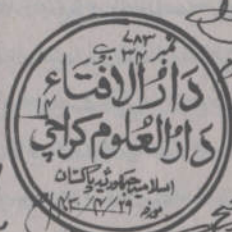 نمبر ۷۸۳
۳۴
دار الافتاء
۱۴
دار العلوم کراچی
اسلامیہ جمہوریہ پاکستان
مورخہ